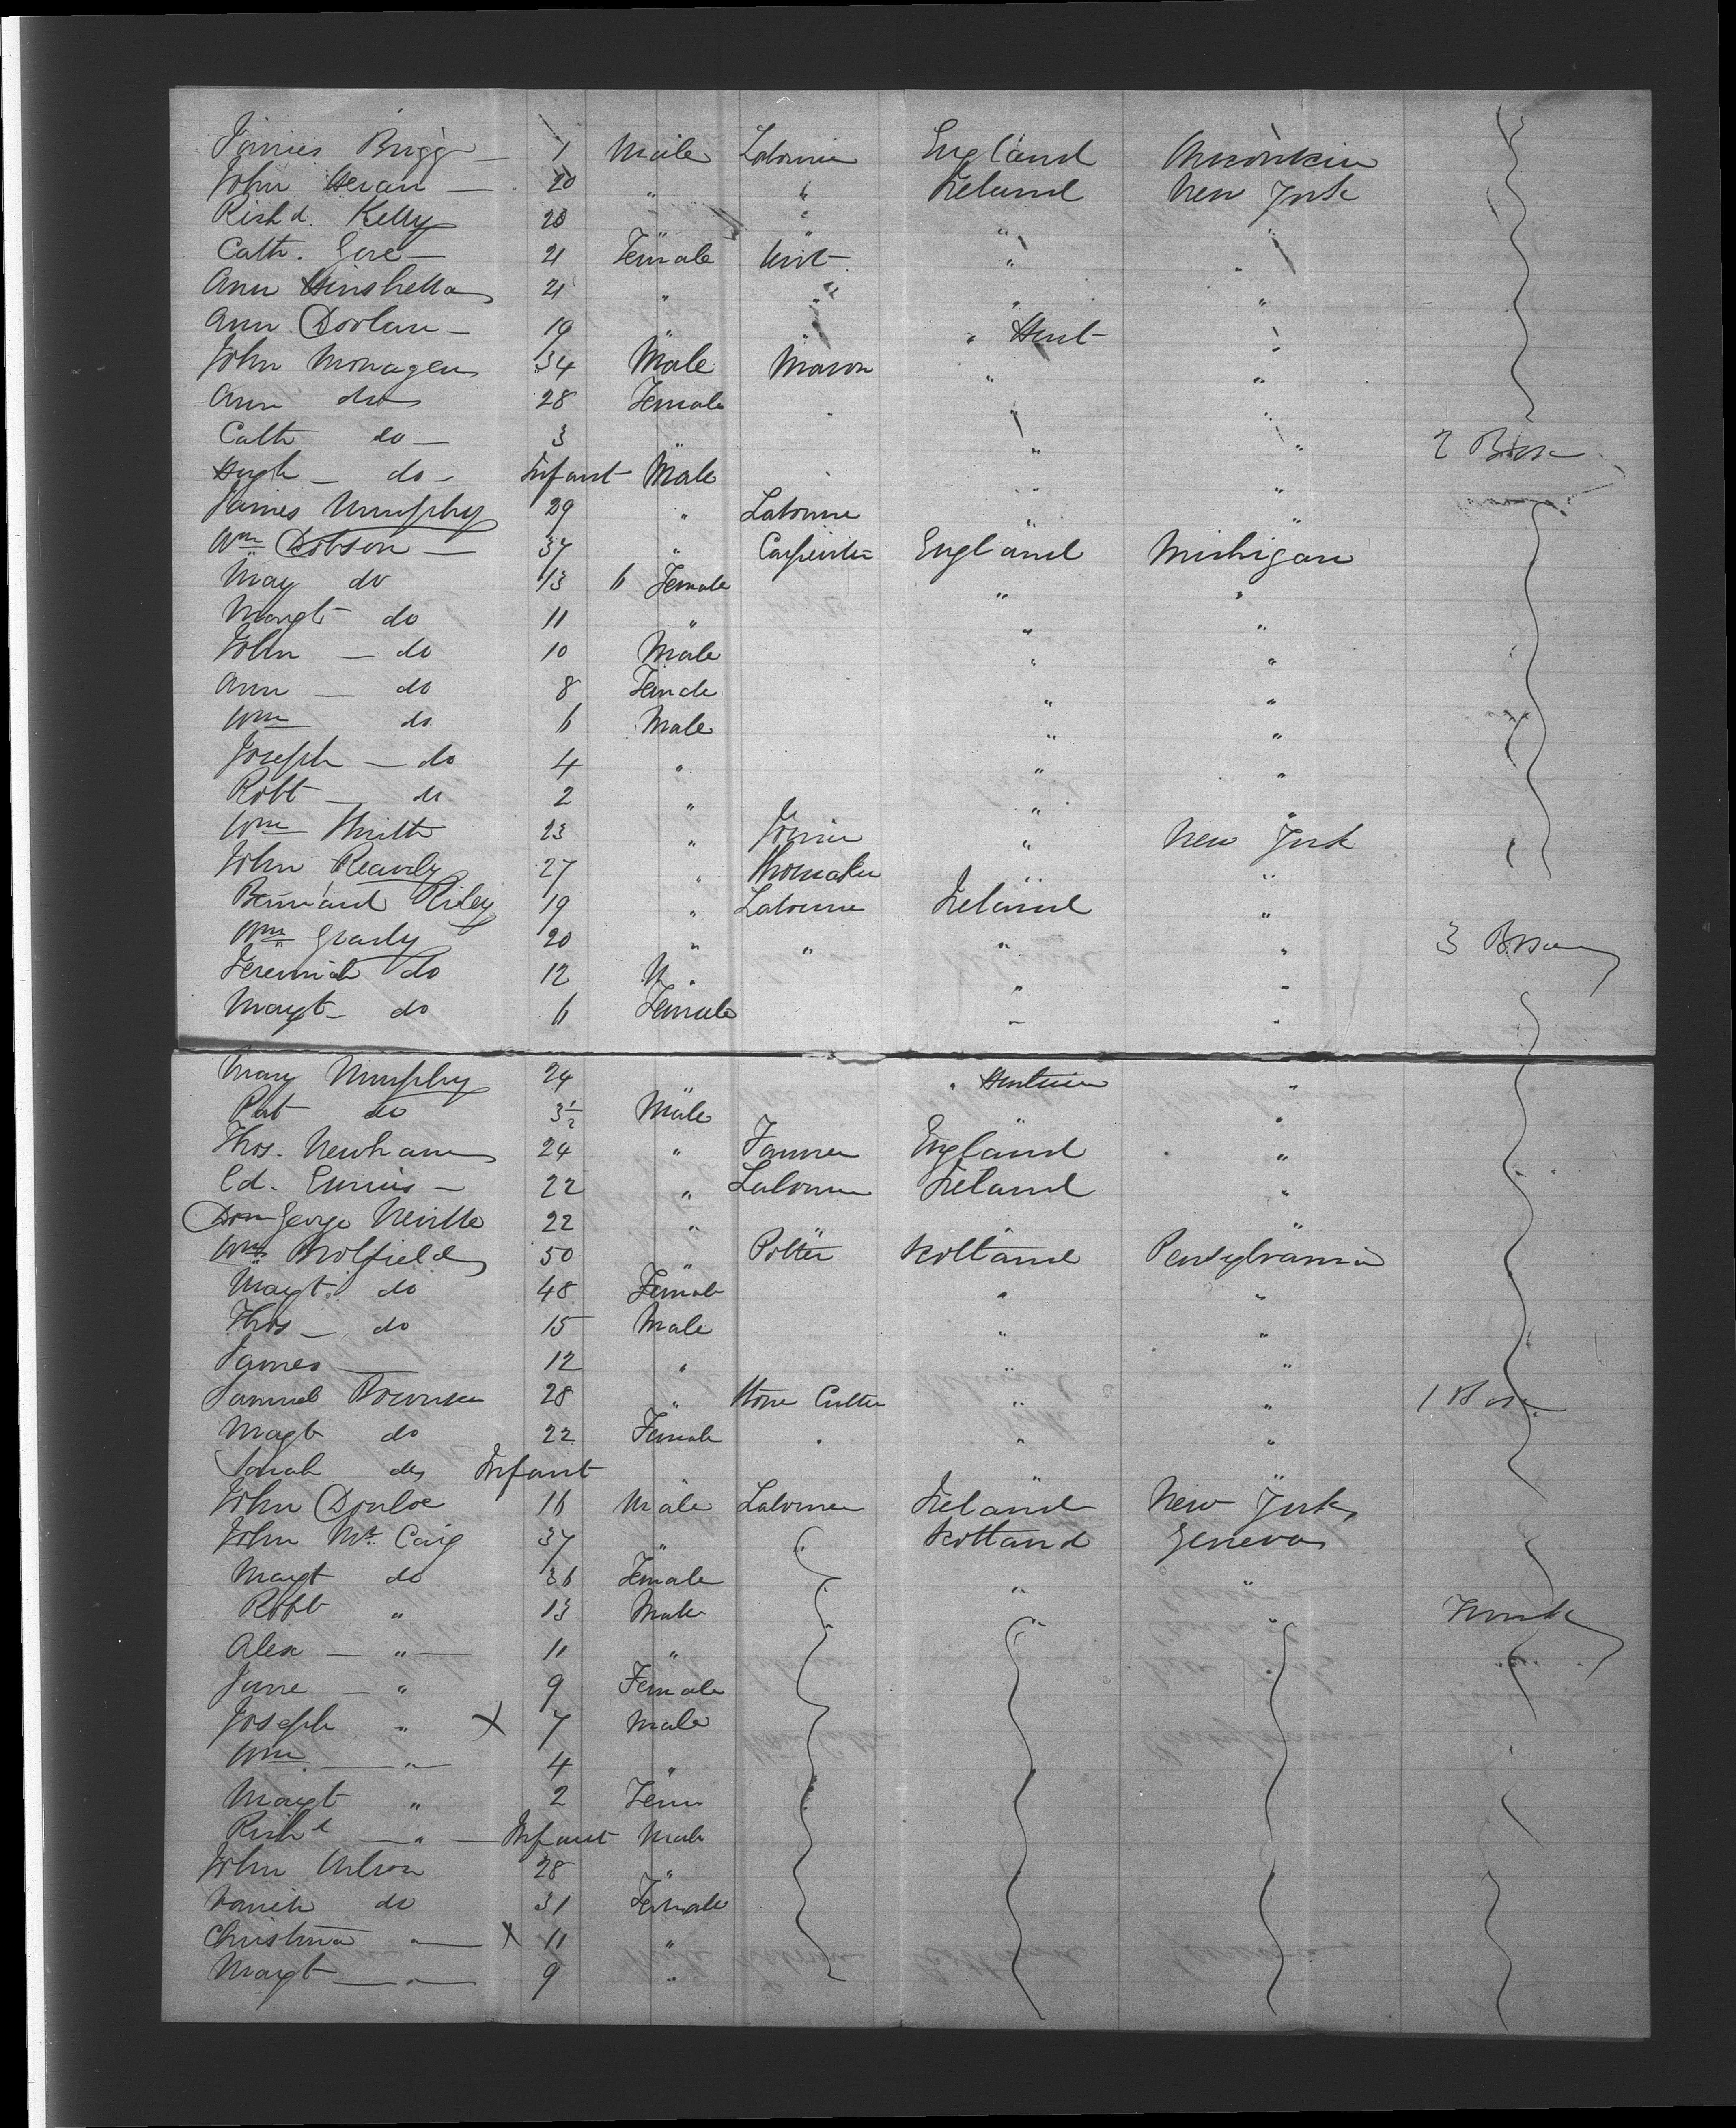 James Brigg — 1 Male Laborer England
John Heran — 20 " " Ireland New York
Richd. Kelly 20 " " " "
Cath. Gore — 21 Female " "
Ann 21 " " " "
Ann Doolan — 19 " " "
John Monagen 34 Male Mason " "
Ann do 28 Female " " "
Cath do — 3 " " " 2 Boxes
Hugh — do - Infant Male " "
James Murphy 29 " Laborer " "
Wm Dobson — 37 " Carpenter England Michigan
May do 13 Female " "
Margt do 11 " " "
John — do 10 Male " "
Ann — do 8 Female " "
Wm do 6 Male " "
Joseph — do 4 " " "
Robt — do 2 " " "
Wm Smith 23 " Joiner " New York
John Reardy 27 " Shomaker " "
Bernard Riley 19 " Laborer Ireland "
Wm Grady 20 " " " " 3 Boxes
Jeremiah do 12 " " "
Margt — do 6 Female " "
Mary Murphy 24 " " "
Pat do 3½ Male "
Thos. Newham 24 " Farmer England "
Ed. — 22 " Laborer Ireland "
George Neville 22 " "
Wm 50 " Potter Scotland Pensylvania
Margt. do 48 Female " "
Thos — do 15 Male " "
James — 12 " " "
Samuel 28 " Stone Cutter " " 1 Box
Magt do 22 Female " " "
Sarah do Infant " "
John Donloe 16 Male Laborer Ireland New York
John Mc Caig 37 " Scotland Geneva
Margt do 36 Female " "
Robt " 13 Male " " Trunk
Alex — " — 11 "
Jane — " 9 Female
Joseph " X 7 Male
Wm. — " — 4 "
Margt " 2 Fem
Richd — " — Infant Male
John Wilson 28 "
do 31 Female
Christina " — X 11 "
Margt — " — 9 "